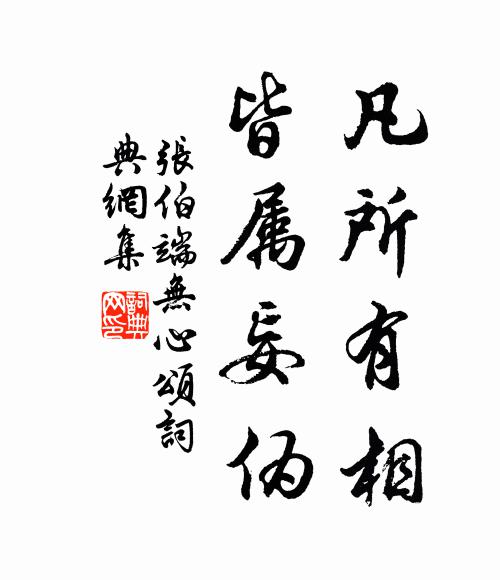 凡所有相
皆属妄伪
張伯端無心頌詞
典網集
詞典
网印